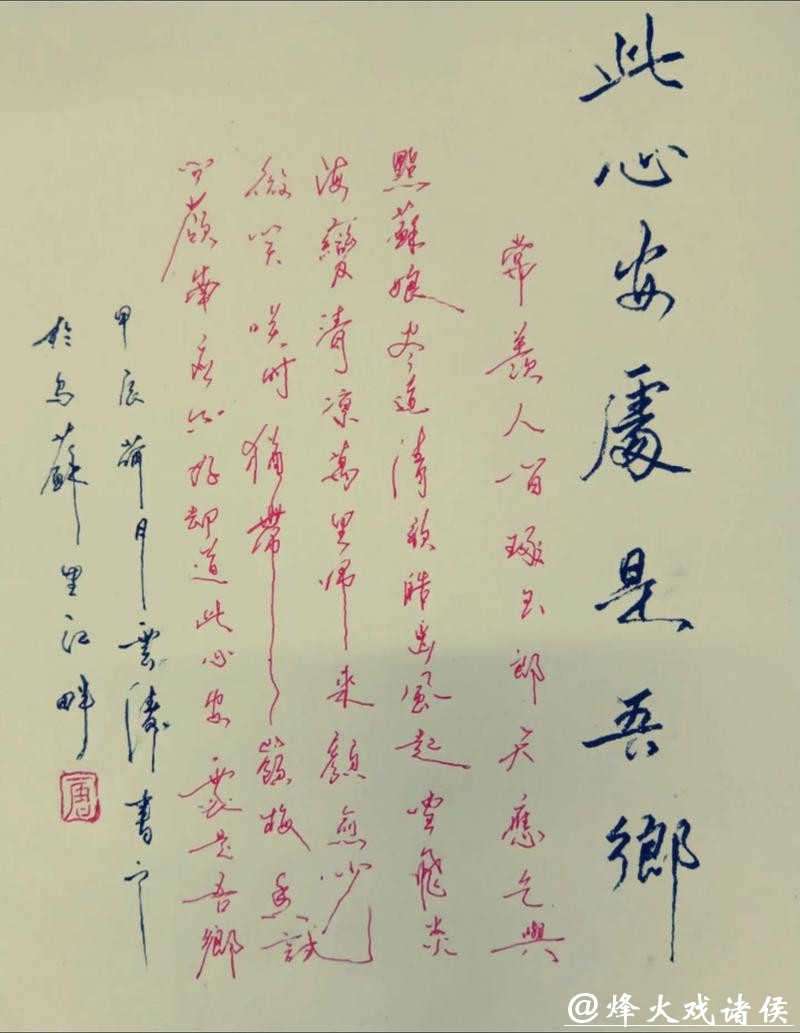 此心安處是吾鄉
常羨人間琢玉郎天應乞與
點蘇娘盡道清歌皓齒風起雪飛炎
海變清凉萬里歸來顏愈少
微笑笑時猶帶嶺梅香試
問嶺南應不好却道此心安處是吾鄉
甲辰荷月雲濤書
於烏蘇里江畔
@烽火戏诸侯